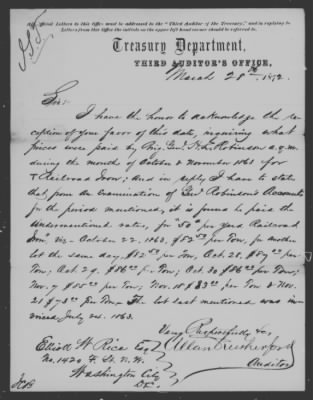 All Official Letters to this Office must be addressed to the "Third Auditor of the Treasury," and in replying to
Letters from this Office the initials on the upper left hand corner should be referred to.
Treasury Department,
THIRD AUDITOR'S OFFICE,
March 28th, 1872.
Sir:
I have the honor to acknowledge the re-
ception of your favor of this date, inquiring what
prices were paid by Brig. Genl. Robinson a.q.m.
during the month of October & November 1863 for
Railroad Iron; And in reply I have to state
that, from an examination of Genl Robinson's Accounts
for the period mentioned, it is found he paid the
undermentioned rates, for "50 lb per yard Railroad
Iron" viz - October 22, 1863, per Ton, for another
lot the same day, per Ton, Oct. 28, per
Ton; Oct. 29, per Ton; Oct. 30, per Ton;
Nov. 7 $85 per Ton; Nov. 18 per Ton & Nov.
21 per Ton. The lot last mentioned was in-
voiced July 24, 1863.
Very Respectfully &c,
Allan Rutherford
Auditor
Elliott W. Rice Esq
No. 1420 F. St. N.W.
Washington City
D.C.